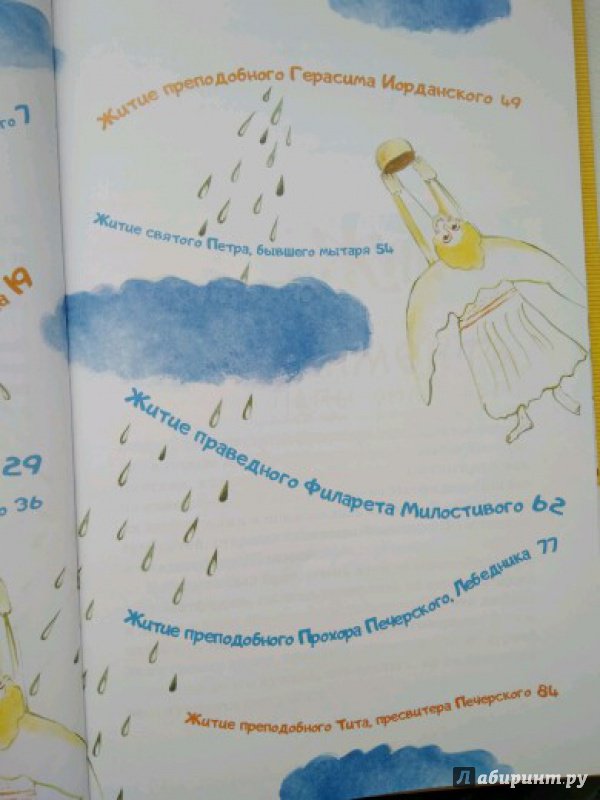 Житие преподобного Герасима Иорданского 49
го 7
Житие святого Петра, бывшего мытаря 54
а 19
Житие праведного Филарета Милостивого 62
29
о 36
Житие преподобного Прохора Печерского, Лебедника 77
Житие преподобного Тита, пресвитера Печерского 84
Лабиринт.ру